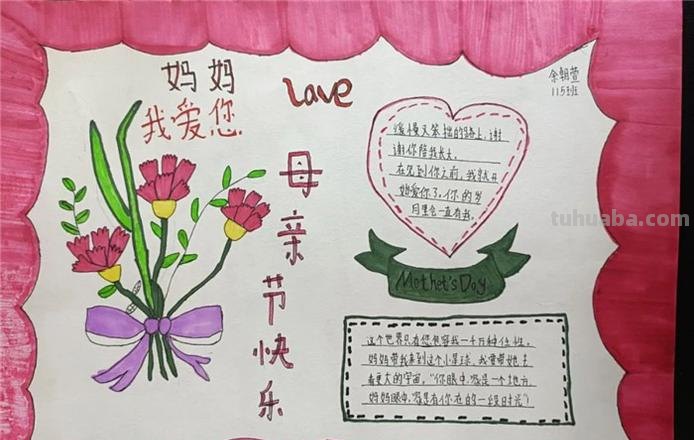 妈妈
我爱您
Love
余朝萱
115班
母亲节快乐
缓慢又笨拙的路上,谢
谢你陪我长大。
在见到你之前,我就开
始爱你了,你的岁
月里会一直有我。
tuhuaba.com
Mothet's Day
这个世界只有您包容我一千万种任性,
妈妈带我来到这个小星球,我要带她去
看更大的宇宙,"你眼中
是一个地方
妈妈眼中
是有你在的一段时光")